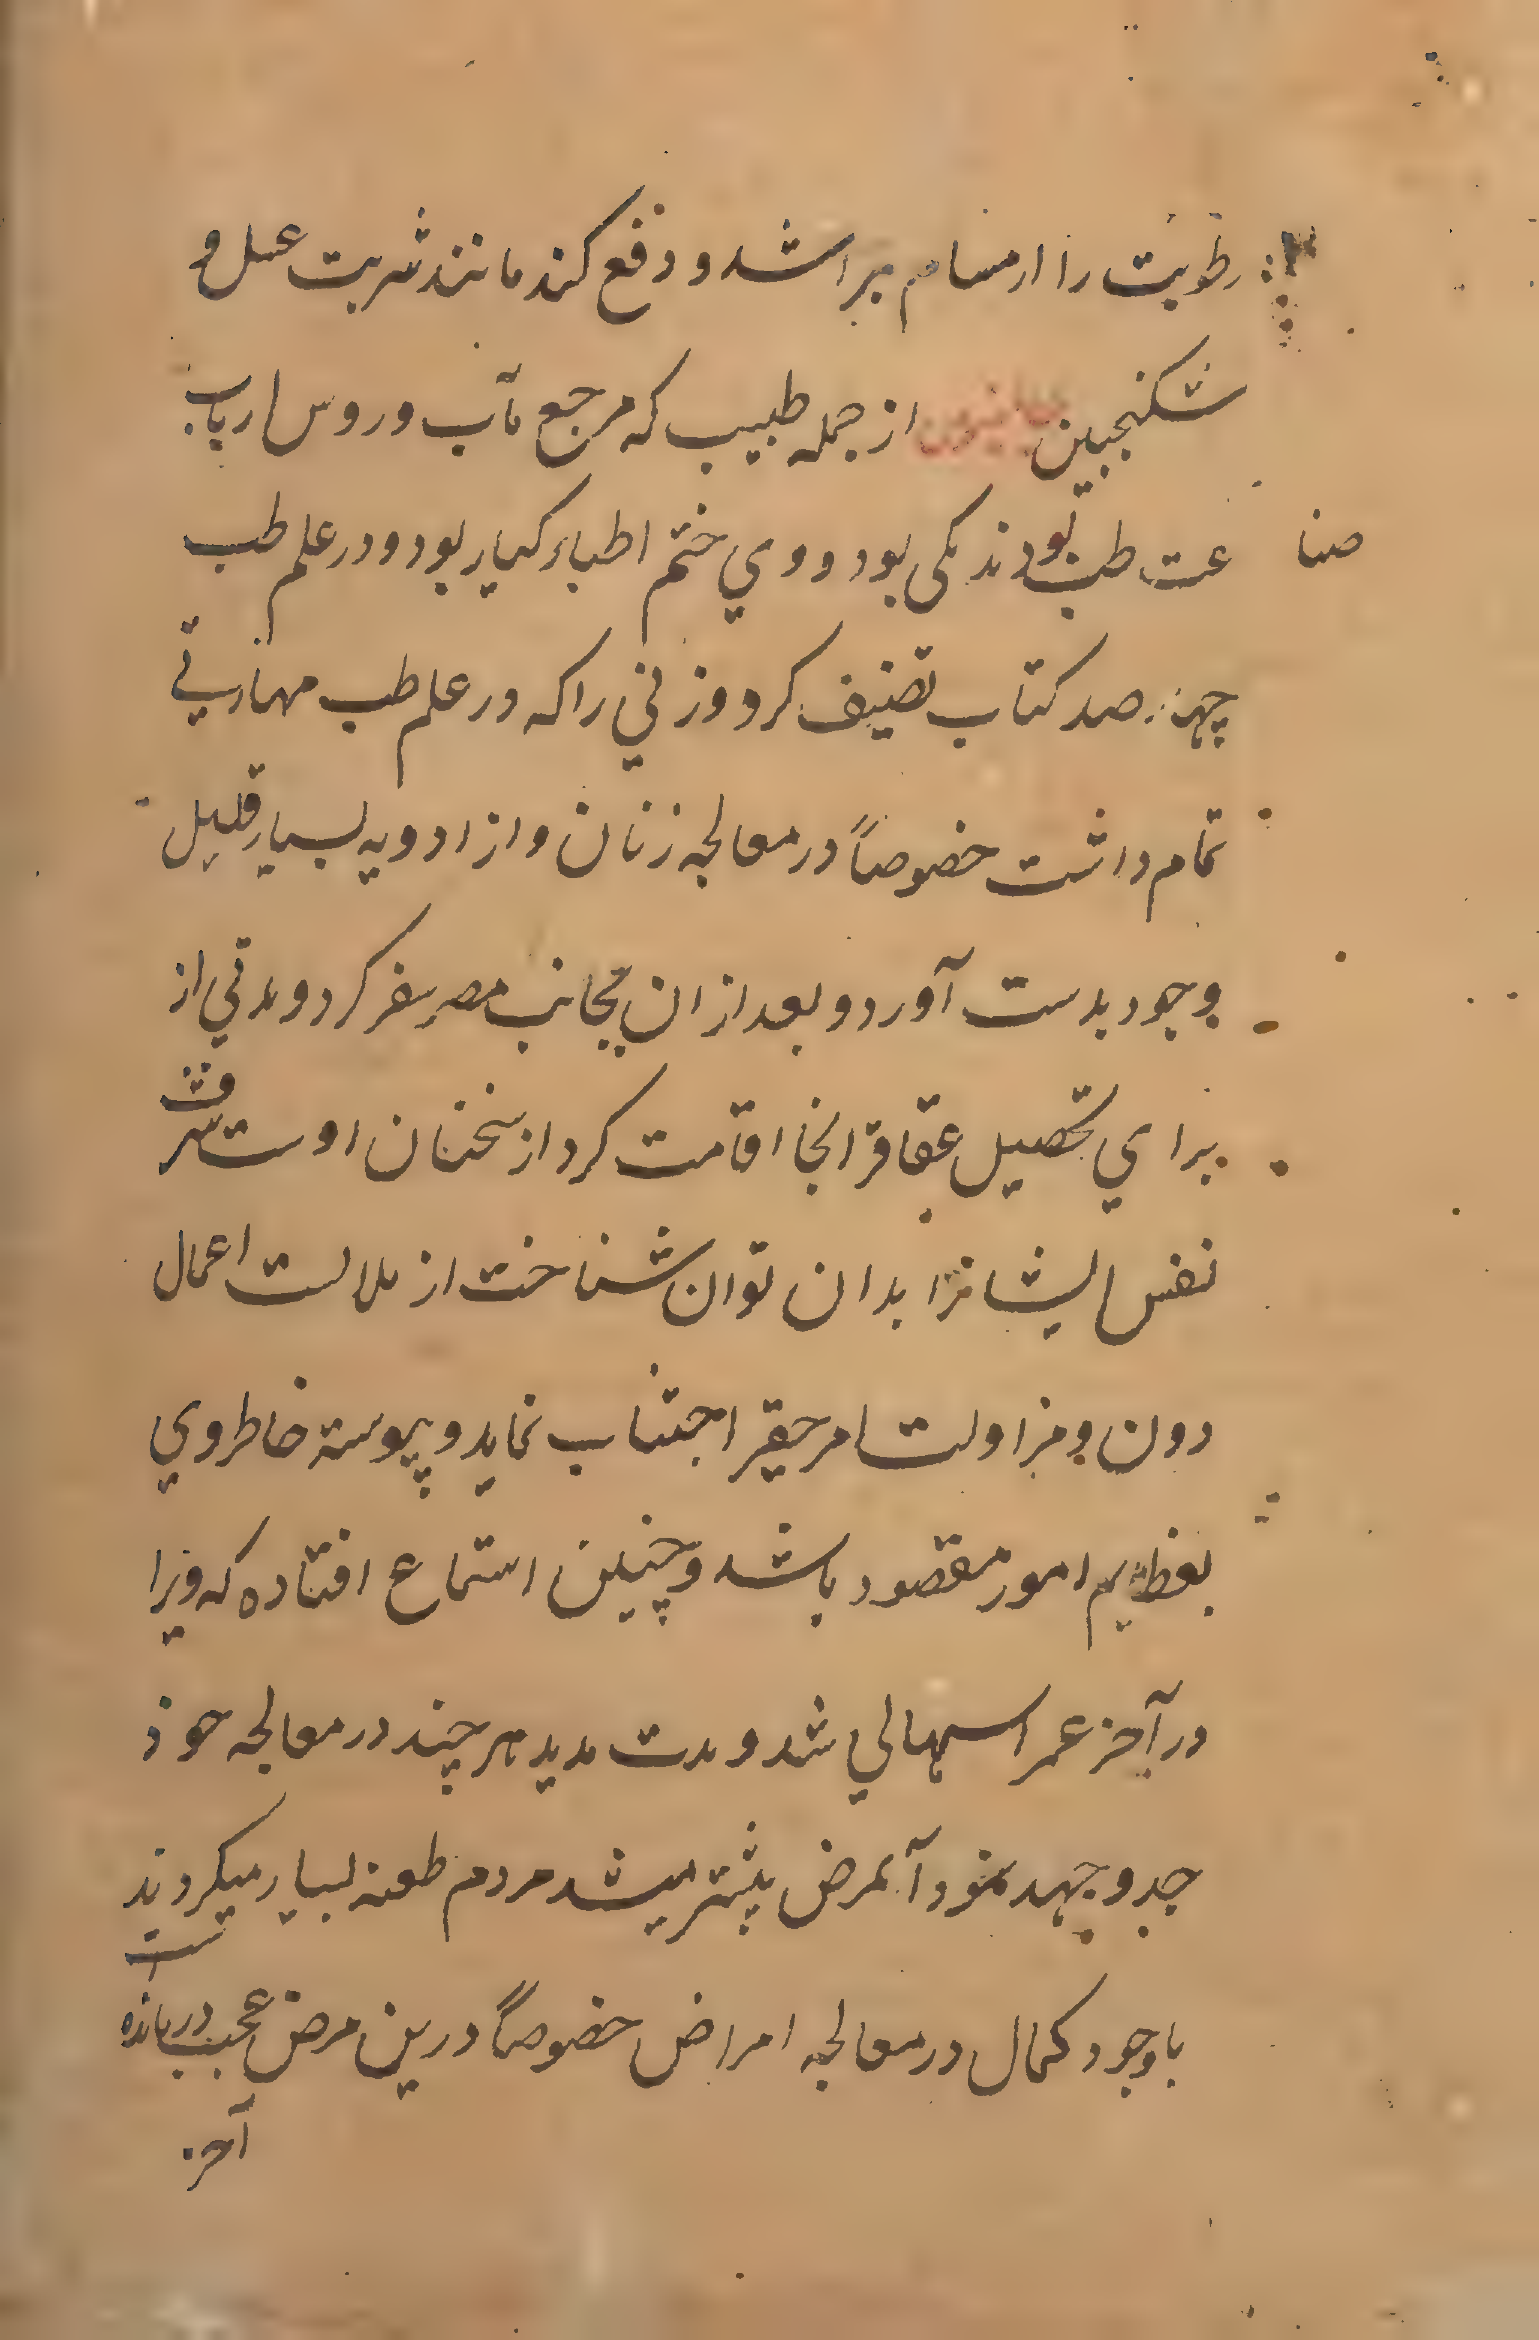 رطوبت را از مسام براشد و دفع کند مانند شربت عسل و
شکنجبین جالینوس از جمله طبیب که مرجع مآب و روس ارباب
صناعت طب بودند یکی بود و وي ختم اطباء کبار بود و در علم طب
چهار صد کتاب تصنیف کرد و زني را که در علم طب مهارتي
تمام داشت خصوصاً در معالجه زنان و از ادویه بسیار قلیل
وجود بدست آورد و بعد از ان بجانب مصر سفر کرد و مدتي از
براي تحصیل عقاقر انجا اقامت کرد از سخنان اوست شرف
نفس ایشانرا بدان توان شناخت از ملالست اعمال
دون و مزاولت امر حقیر اجتناب نماید و پیوسته خاطر وي
بعظیم امور مقصود باشد و چنین استماع افتاده که ویرا
در آخر عمر اسهالي شد و مدت مدید هر چند در معالجه خود
جد و جهد نمود آنمرض بیشتر میشد مردم طعنه بسیار میکردند
باوجود کمال در معالجه امراض خصوصاً درین مرض عجب درمانده است
آخر